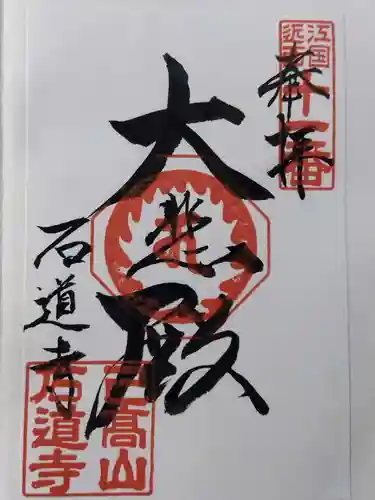 奉拝
近江国十一番
大悲殿
石道寺
己高山
石道寺